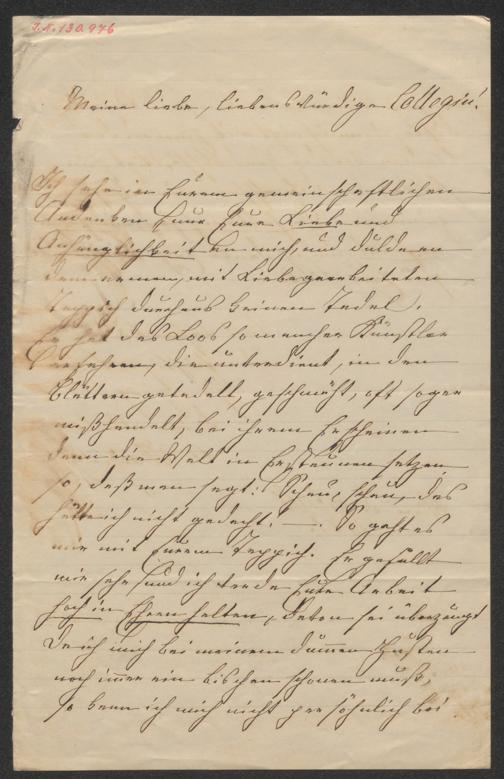 I.N. 130.976
Meine liebe, liebenswürdige Collegin!
Ich sehe in Eurem gemeinschaftlichen
Andenken nur Eure Liebe und
Anhänglichkeit an mich, und dulde an
dem armen, mit Liebe gearbeiteten
Teppich durchaus keinen Tadel.
Er hat das Loos so mancher Künstler
erfahren, die unverdient, in den
Blättern getadelt, geschmäht, oft sogar
mißhandelt, bei ihrem Erscheinen
dann die Welt in Erstaunen setzen
so, daß man sagt: Schau, schau, das
hätte ich nicht gedacht! —. So geht es
mir mit Eurem Teppich. Er gefällt
mir sehr und ich werde Eure Arbeit
hoch in Ehren halten, davon sei überzeugt
Da ich mich bei meinem Husten
noch immer ein bischen schonen muß,
so kann ich mich nicht persöhnlich bei